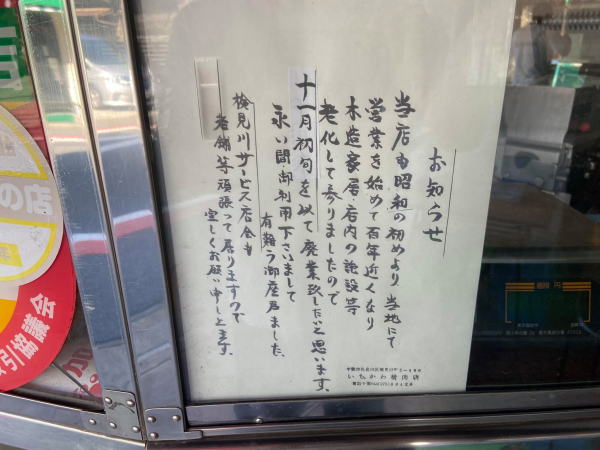 お知らせ
当店も昭和の初めより当地にて
営業を始めて百年近くなり
木造家屋・店内の施設等
老化して参りましたので
十一月初旬を以て廃業致したいと思います、
永い間御利用下さいまして
有難う御座居ました、
検見川サービス店会も
老舗等頑張って居りますので
宜しくお願い申し上ます、
いちかわ精肉店
の店
引協議会